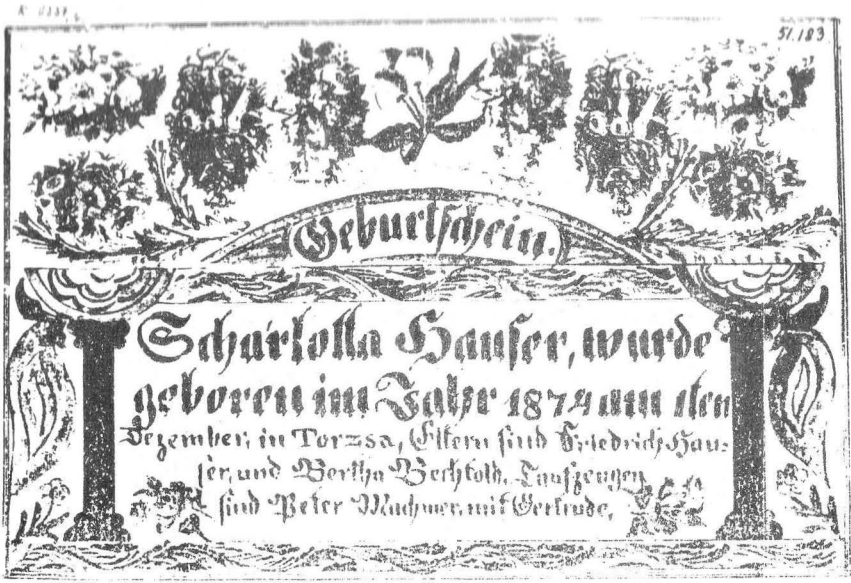 51.183
Geburtschein.
Scharlolla Hauser, wurde
geboren im Jahr 1874 am
Dezember, in Torzsa, Eltern sind Friedrich Hau-
ser, und Bertha Bechtold, Taufzeugen
sind Peter Machmer, mit Gertrude,